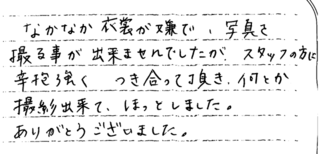 なかなか衣裳が嫌で、写真を
撮る事が出来ませんでしたが、スタッフの方に
辛抱強く つき合って頂き、何とか
撮影出来て、ほっとしました。
ありがとうございました。